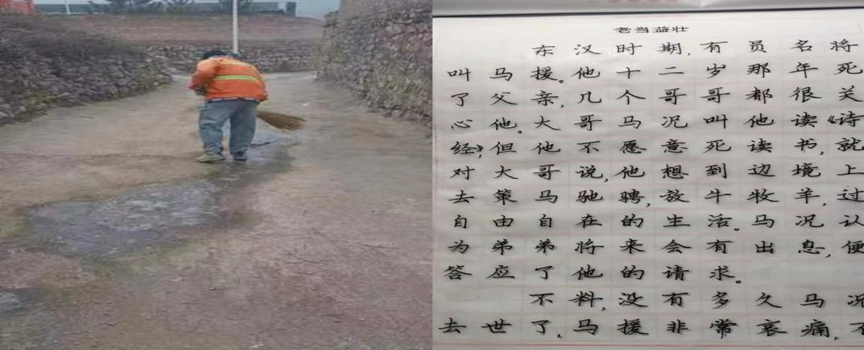 老当益壮
东汉时期，有员名将
叫马援。他十二岁那年死
了父亲，几个哥哥都很关
心他。大哥马况叫他读《诗
经》，但他不愿意死读书，就
对大哥说，他想到边境上
去策马驰骋，放牛牧羊，过
自由自在的生活。马况认
为弟弟将来会有出息，便
答应了他的请求。
不料，没有多久马况
去世了，马援非常哀痛，